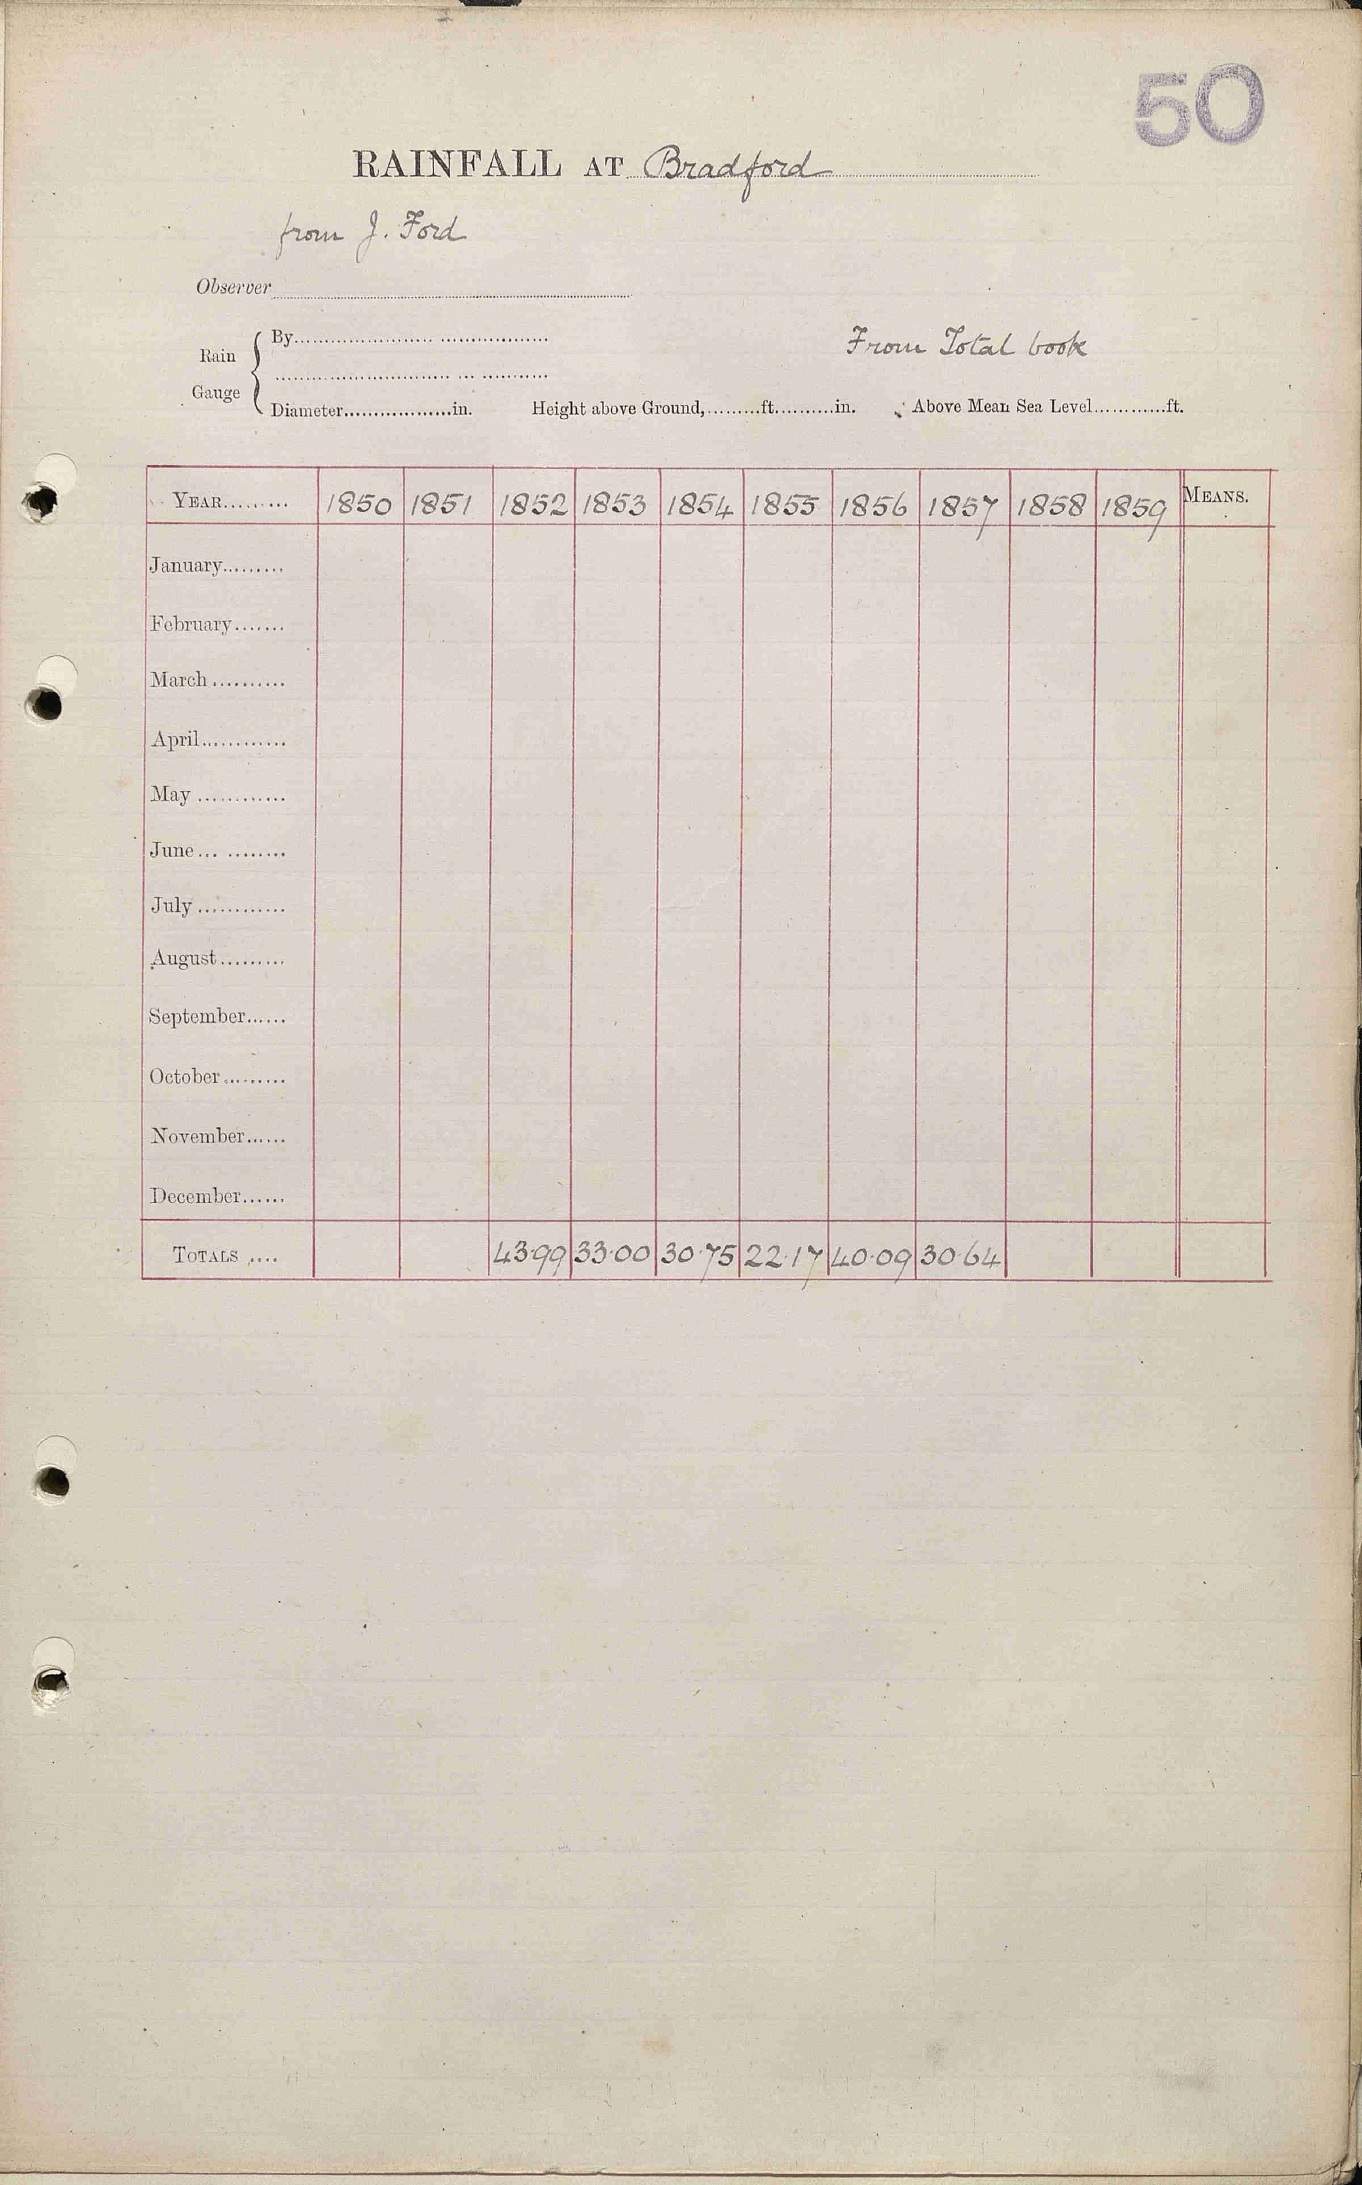 50
RAINFALL AT Bradford
from J. Ford
Observer
Rain Gauge By
From Total book
Diameter in. Height above Ground, ft. in. Above Mean Sea Level ft.
YEAR 1850 1851 1852 1853 1854 1855 1856 1857 1858 1859 MEANS.
January
February
March
April
May
June
July
August
September
October
November
December
TOTALS 43.99 33.00 30.75 22.17 40.09 30.64